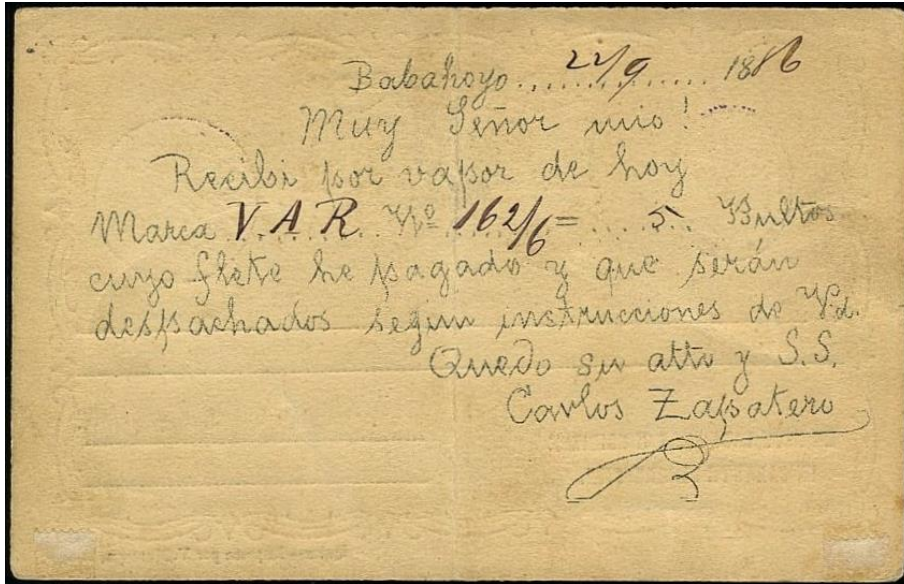 Babahoyo....22/9........1886
Muy Señor mio!
Recibi por vapor de hoy
Marca V.A.R. Nº 162/6=....5.. Bultos
cuyo flete he pagado y que serán
despachados segun instrucciones de Vd.
Quedo su atto y S.S.
Carlos Zapatero